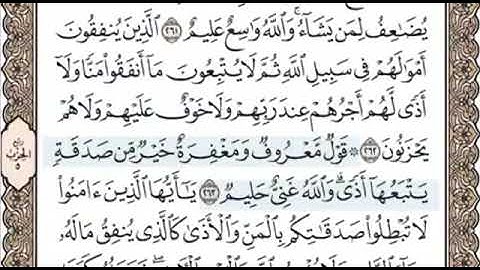 يُضَٰعِفُ لِمَن يَشَآءُ ۗ وَٱللَّهُ وَٰسِعٌ عَلِيمٌ ٢٦١ ٱلَّذِينَ يُنفِقُونَ
أَمْوَٰلَهُمْ فِى سَبِيلِ ٱللَّهِ ثُمَّ لَا يُتْبِعُونَ مَآ أَنفَقُوا۟ مَنًّا وَلَآ
أَذًى ۙ لَّهُمْ أَجْرُهُمْ عِندَ رَبِّهِمْ وَلَا خَوْفٌ عَلَيْهِمْ وَلَا هُمْ
يَحْزَنُونَ ٢٦٢ ۞ قَوْلٌ مَّعْرُوفٌ وَمَغْفِرَةٌ خَيْرٌ مِّن صَدَقَةٍ
يَتْبَعُهَآ أَذًى ۗ وَٱللَّهُ غَنِىٌّ حَلِيمٌ ٢٦٣ يَٰٓأَيُّهَا ٱلَّذِينَ ءَامَنُوا۟
لَا تُبْطِلُوا۟ صَدَقَٰتِكُم بِٱلْمَنِّ وَٱلْأَذَىٰ كَٱلَّذِى يُنفِقُ مَالَهُۥ